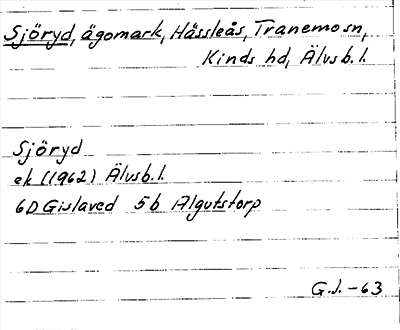 Sjöryd, ägomark, Hässleås, Tranemo sn,
Kinds hd, Älvsb. l.
Sjöryd
ek (1962) Älvsb. l.
6D Gislaved 5b Algutstorp
G.J. -63